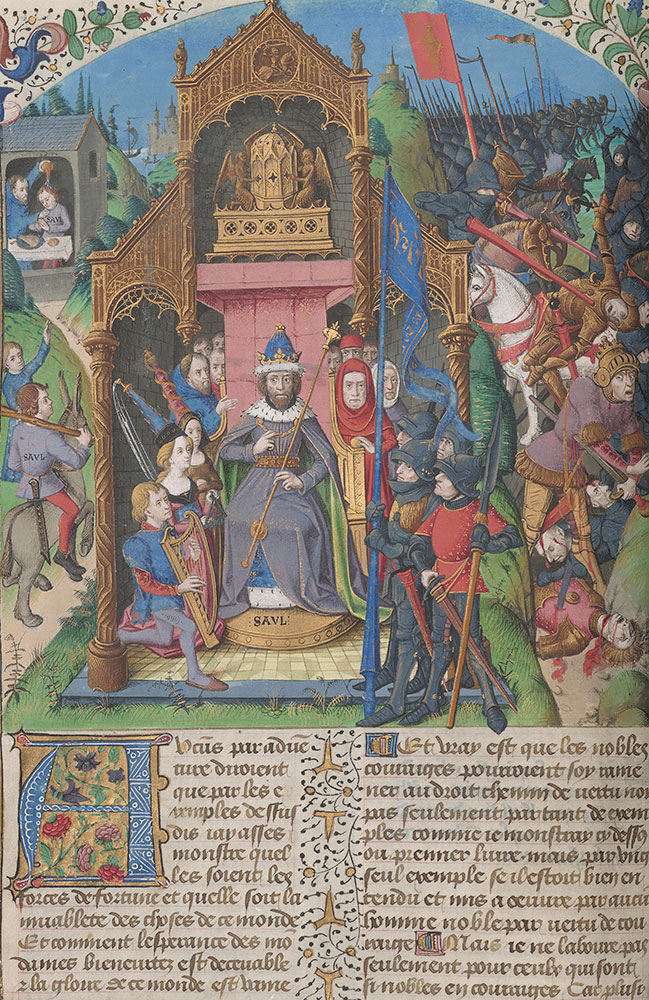 SAVL
SAVL
SAVL
Aucuns par aduē
ture diroient
que par les e
xemples dessus
dis iay asses
monstre quel
les soient les
forces de fortune et quelle soit la
muablete des choses de ce monde
Et comment lesperance des mō
dames bieneurtez est deceuable
& la gloire de ce monde est vaine
Et vray est que les nobles
couraiges pourroient soy rame
ner au droit chemin de vertu non
pas seulement par tant de exem
ples comme ie monstray cy dessus
ou premier liure. mais par vng
seul exemple se il estoit bien en
tendu et mis a oeuure par aucun
homme noble par vertu de cou
raige Mais ie ne laboure pas
seulement pour ceulx qui sont
si nobles en couraiges. Car plusi